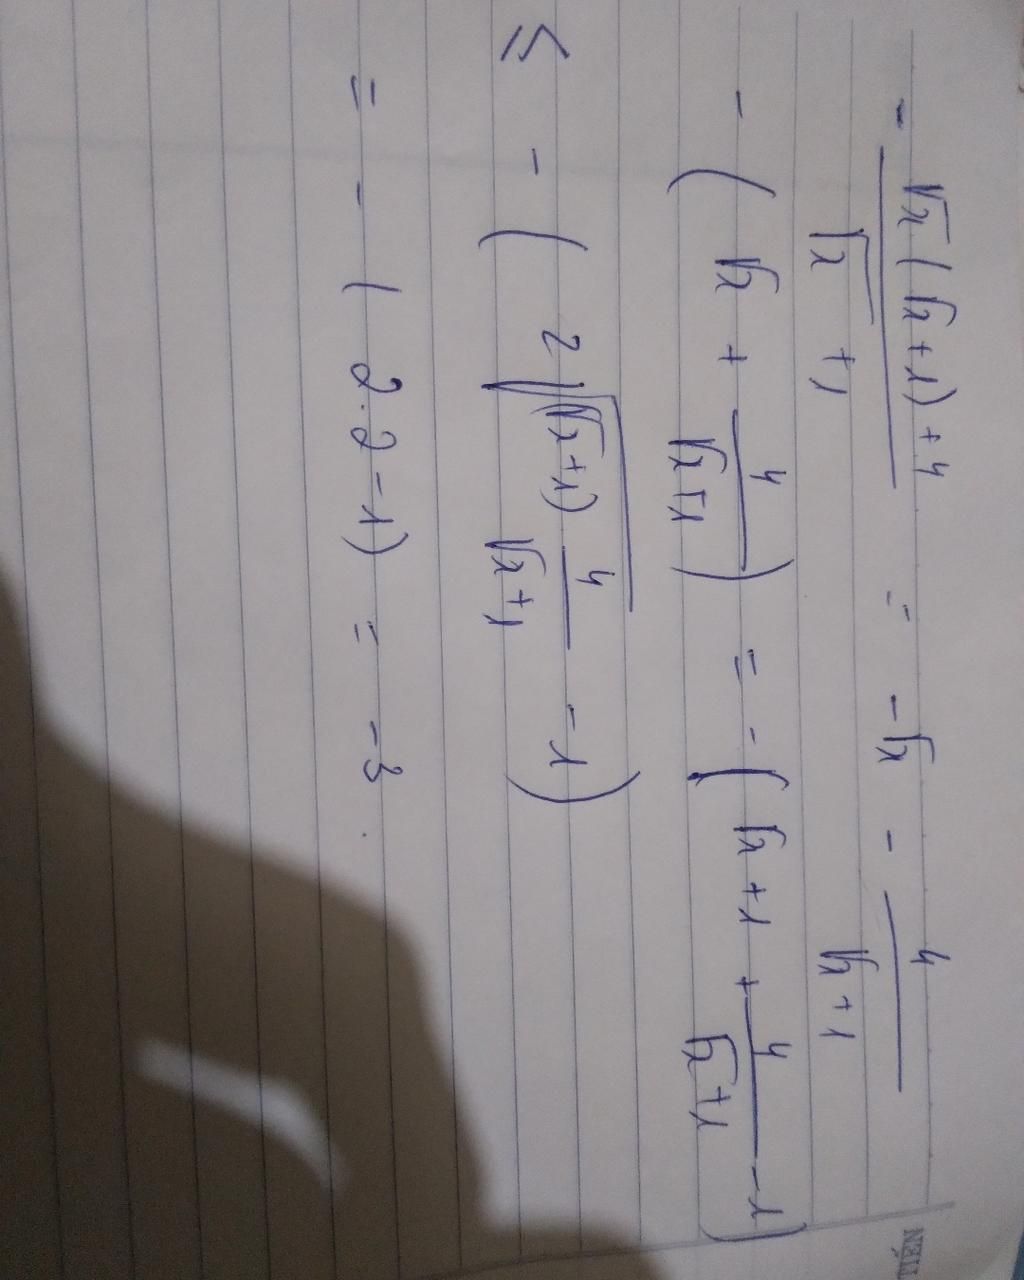 - (√x(√x+1)+4)/(√x+1) = -√x - 4/(√x+1)
- (√x + 4/(√x+1)) = - (√x+1 + 4/(√x+1) - 1)
≤ - (2√((√x+1) 4/(√x+1)) - 1)
= - (2.2-1) = -3.